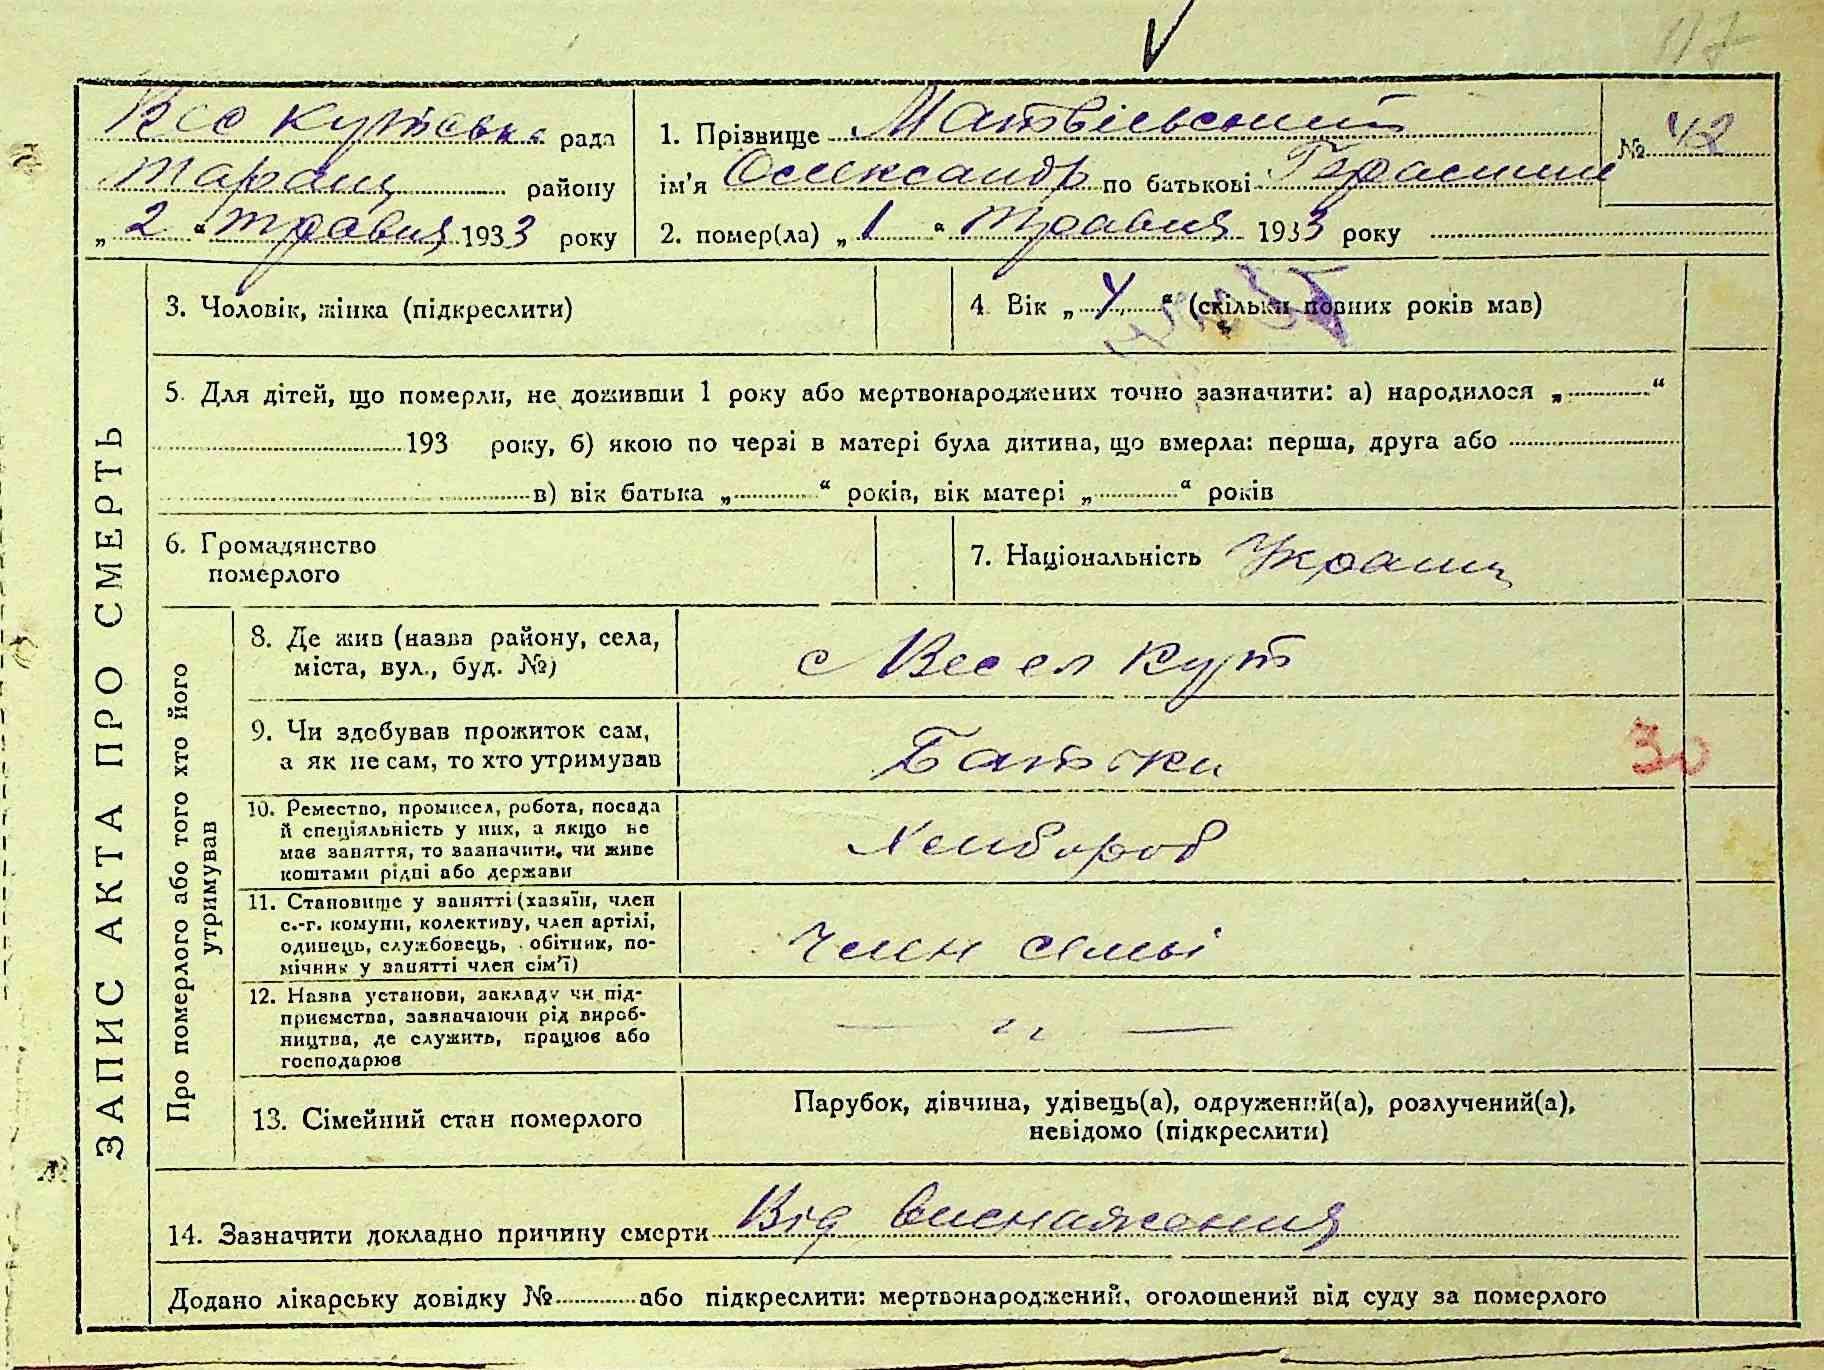 117
Вес Кутська рада
Таращ району
„ 2 “ травня 1933 року
1. Прізвище Матвієвський
№ 42
ім'я Олександр по батькові Герасим
2. помер(ла) „ 1 “ травня 1933 року
ЗАПИС АКТА ПРО СМЕРТЬ
3. Чоловік, жінка (підкреслити)
4. Вік „ 4 “ (скільки повних років мав)
5. Для дітей, що померли, не доживши 1 року або мертвонароджених точно зазначити: а) народилося „ “
193 року, б) якою по черзі в матері була дитина, що вмерла: перша, друга або
в) вік батька „ “ років, вік матері „ “ років
6. Громадянство
померлого
7. Національність Україн
Про померлого або того хто його
утримував
8. Де жив (назва району, села,
міста, вул., буд. №)
с Весел Кут
9. Чи здобував прожиток сам,
а як не сам, то хто утримував
Батьки
30
10. Ремество, промисел, робота, посада
й спеціяльність у них, а якщо не
має заняття, то зазначити, чи живе
коштами рідні або держави
Хлібороб
11. Становище у занятті (хазяїн, член
с.-г. комуни, колективу, член артілі,
одинець, службовець, обітник, по-
мічник у занятті член сім'ї)
Член семьі
12. Назва установи, закладу чи під-
приємства, зазначаючи рід вироб-
ництва, де служить, працює або
господарює
— „ —
13. Сімейний стан померлого
Парубок, дівчина, удівець(а), одружений(а), розлучений(а),
невідомо (підкреслити)
14. Зазначити докладно причину смерти Від виснаження
Додано лікарську довідку № або підкреслити: мертвонароджений, оголошений від суду за померлого